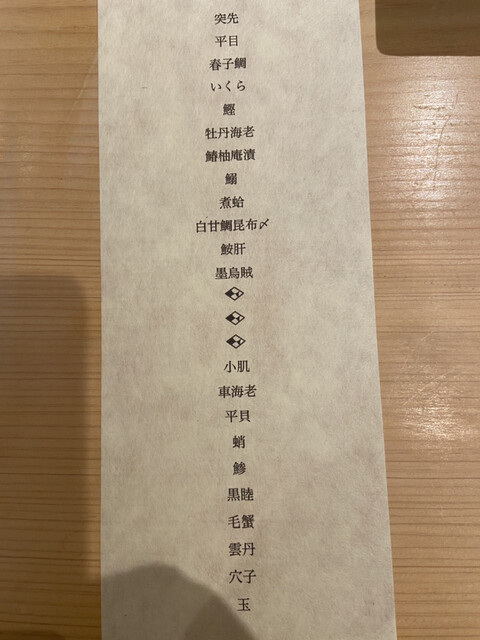 突先
平目
春子鯛
いくら
鰹
牡丹海老
鰆柚庵漬
鰯
煮蛤
白甘鯛昆布〆
鮟肝
墨烏賊
小肌
車海老
平貝
蛸
鯵
黒睦
毛蟹
雲丹
穴子
玉